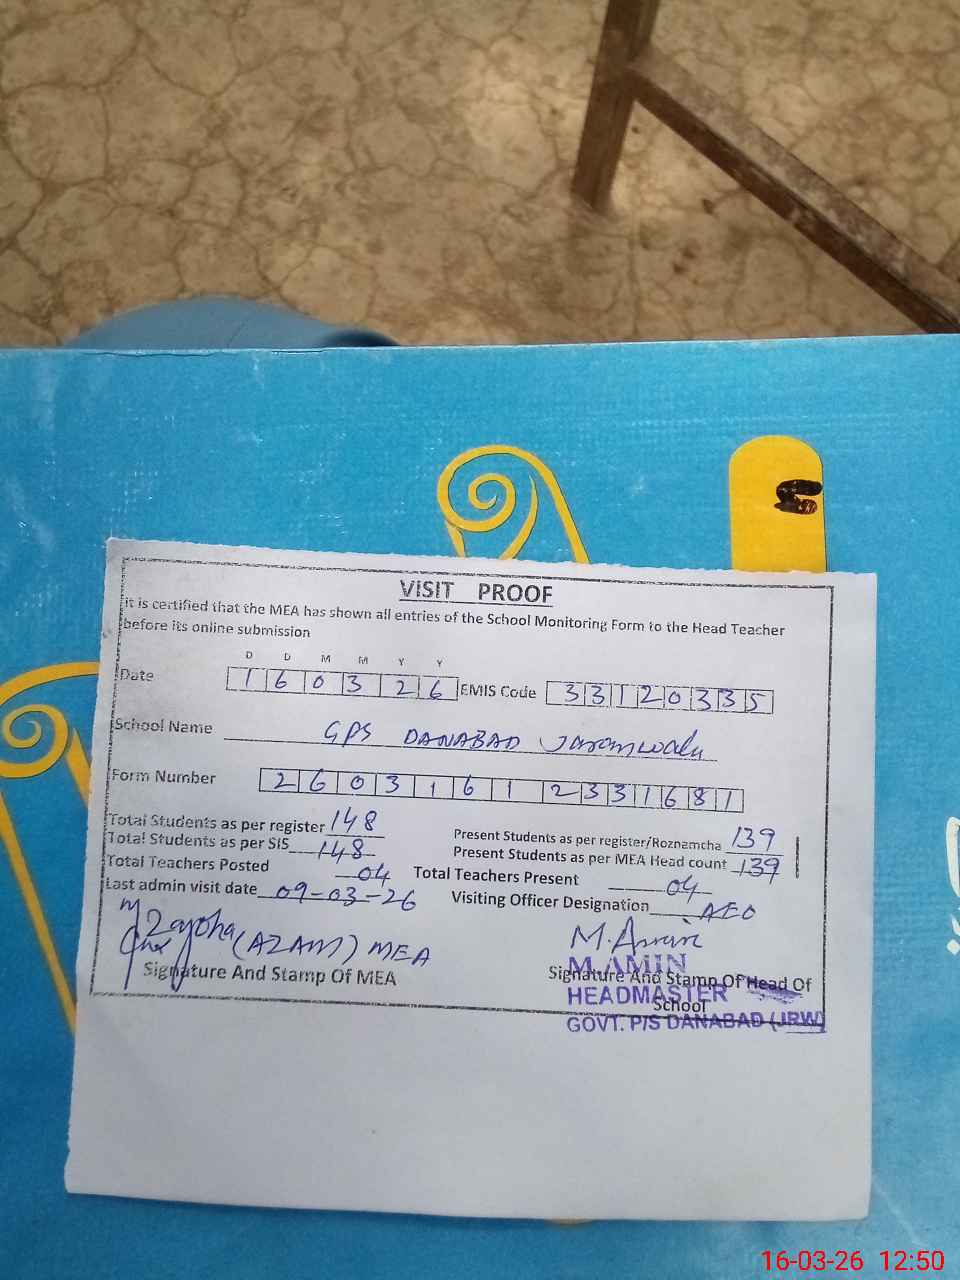 VISIT PROOF
it is certified that the MEA has shown all entries of the School Monitoring Form to the Head Teacher
before its online submission
D D M M Y Y
Date 1 6 0 3 2 6 EMIS Code 3 3 1 2 0 3 3 5
School Name GPS DANABAD Jaranwala
Form Number 2 6 0 3 1 6 1 2 3 3 1 6 8 1
Total Students as per register 148 Present Students as per register/Roznamcha 139
Total Students as per SIS 148 Present Students as per MEA Head count 139
Total Teachers Posted 04 Total Teachers Present 04
Last admin visit date 09-03-26 Visiting Officer Designation AEO
(AZAM) MEA M. Amin
Signature And Stamp Of MEA Signature And Stamp Of Head Of
School
M. AMIN
HEADMASTER
GOVT. P/S DANABAD (JRW)
16-03-26 12:50